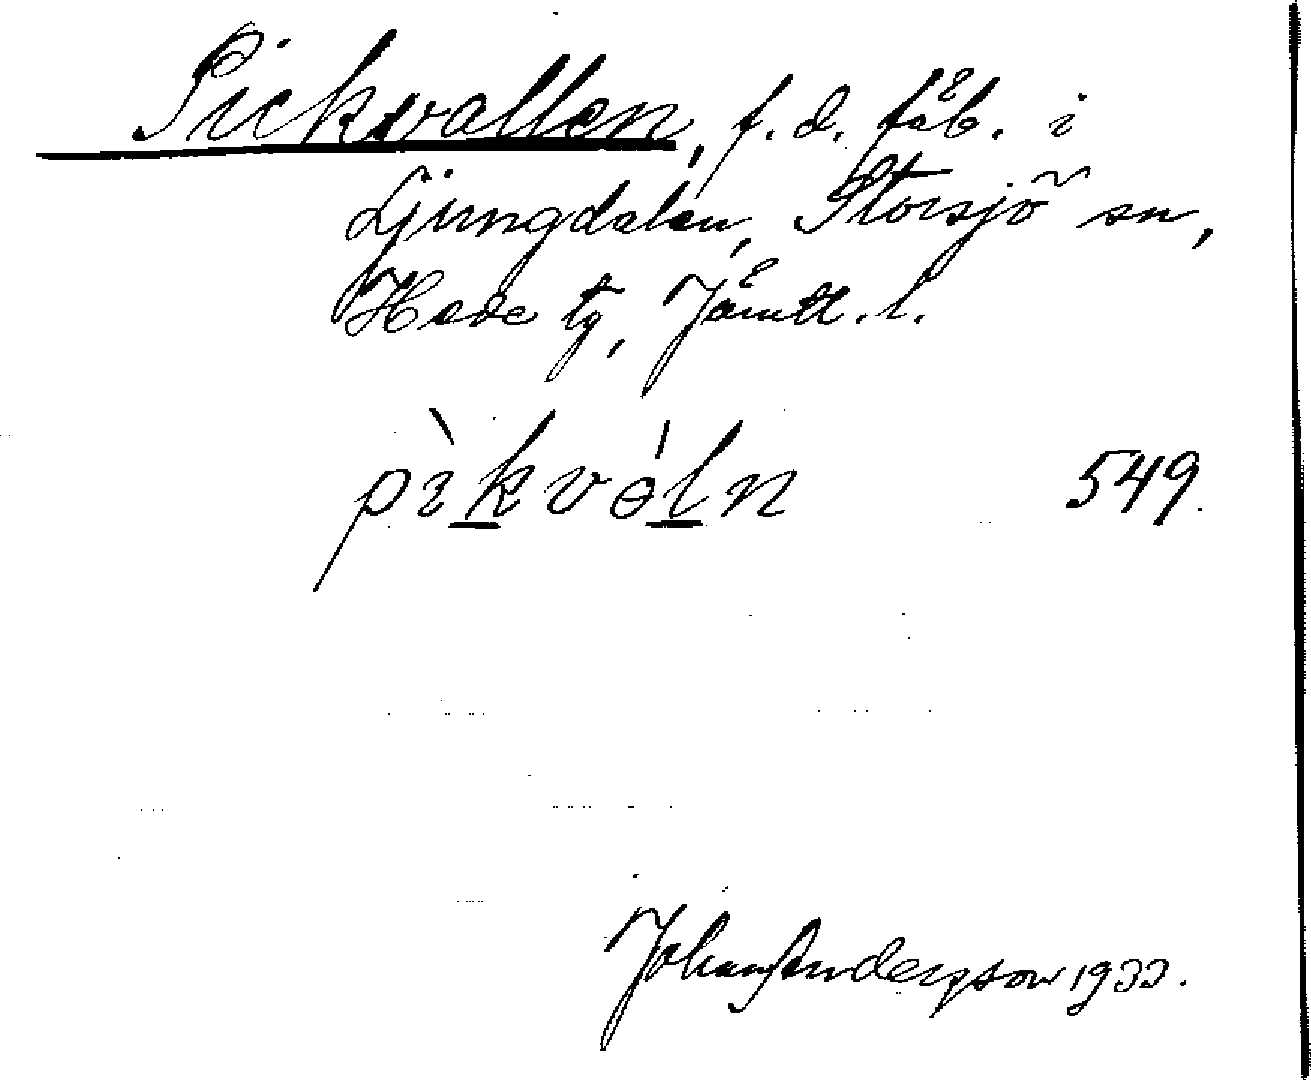 Pickvallen, f. d. fåb. i
Ljungdalen, Storsjö sn,
Hede tg, Jämtl. l.
pìkvɵ́ln 549.
Johan Anderson 1933.